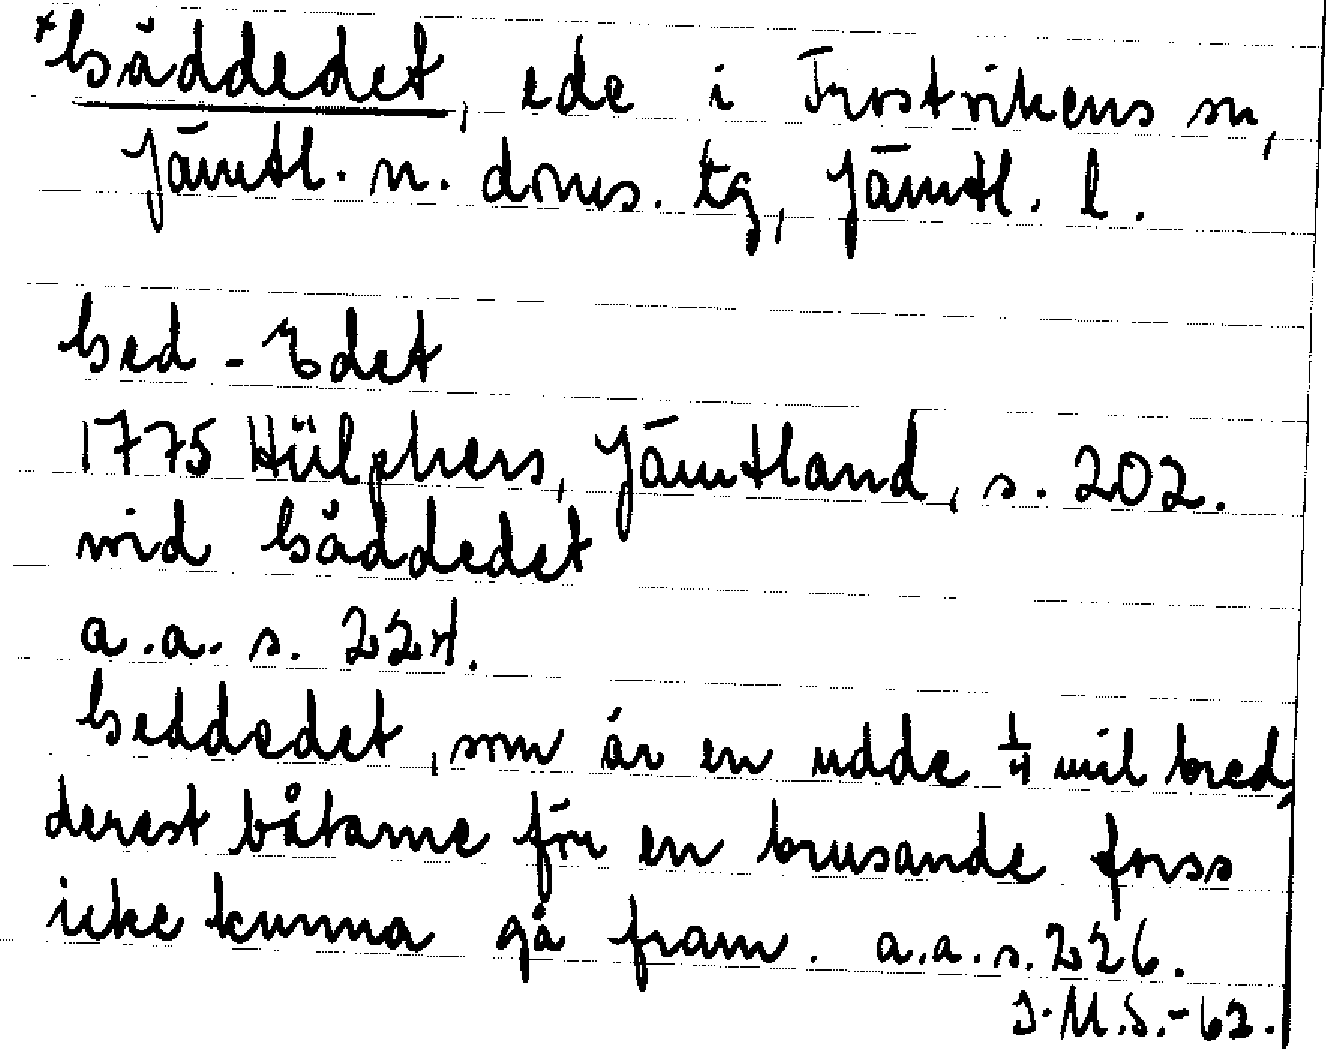 *Gäddedet, ede i Frostvikens sn,
Jämtl. n. doms. tg, Jämtl. l.
Ged-Edet
1775 Hülphers, Jämtland, s. 202.
wid Gäddedet
a.a. s. 224.
Geddedet, som är en udde ¼ mil bred,
derest båtarne för en brusande forss
icke kunna gå fram. a.a. s. 226.
I.M.S.-62.